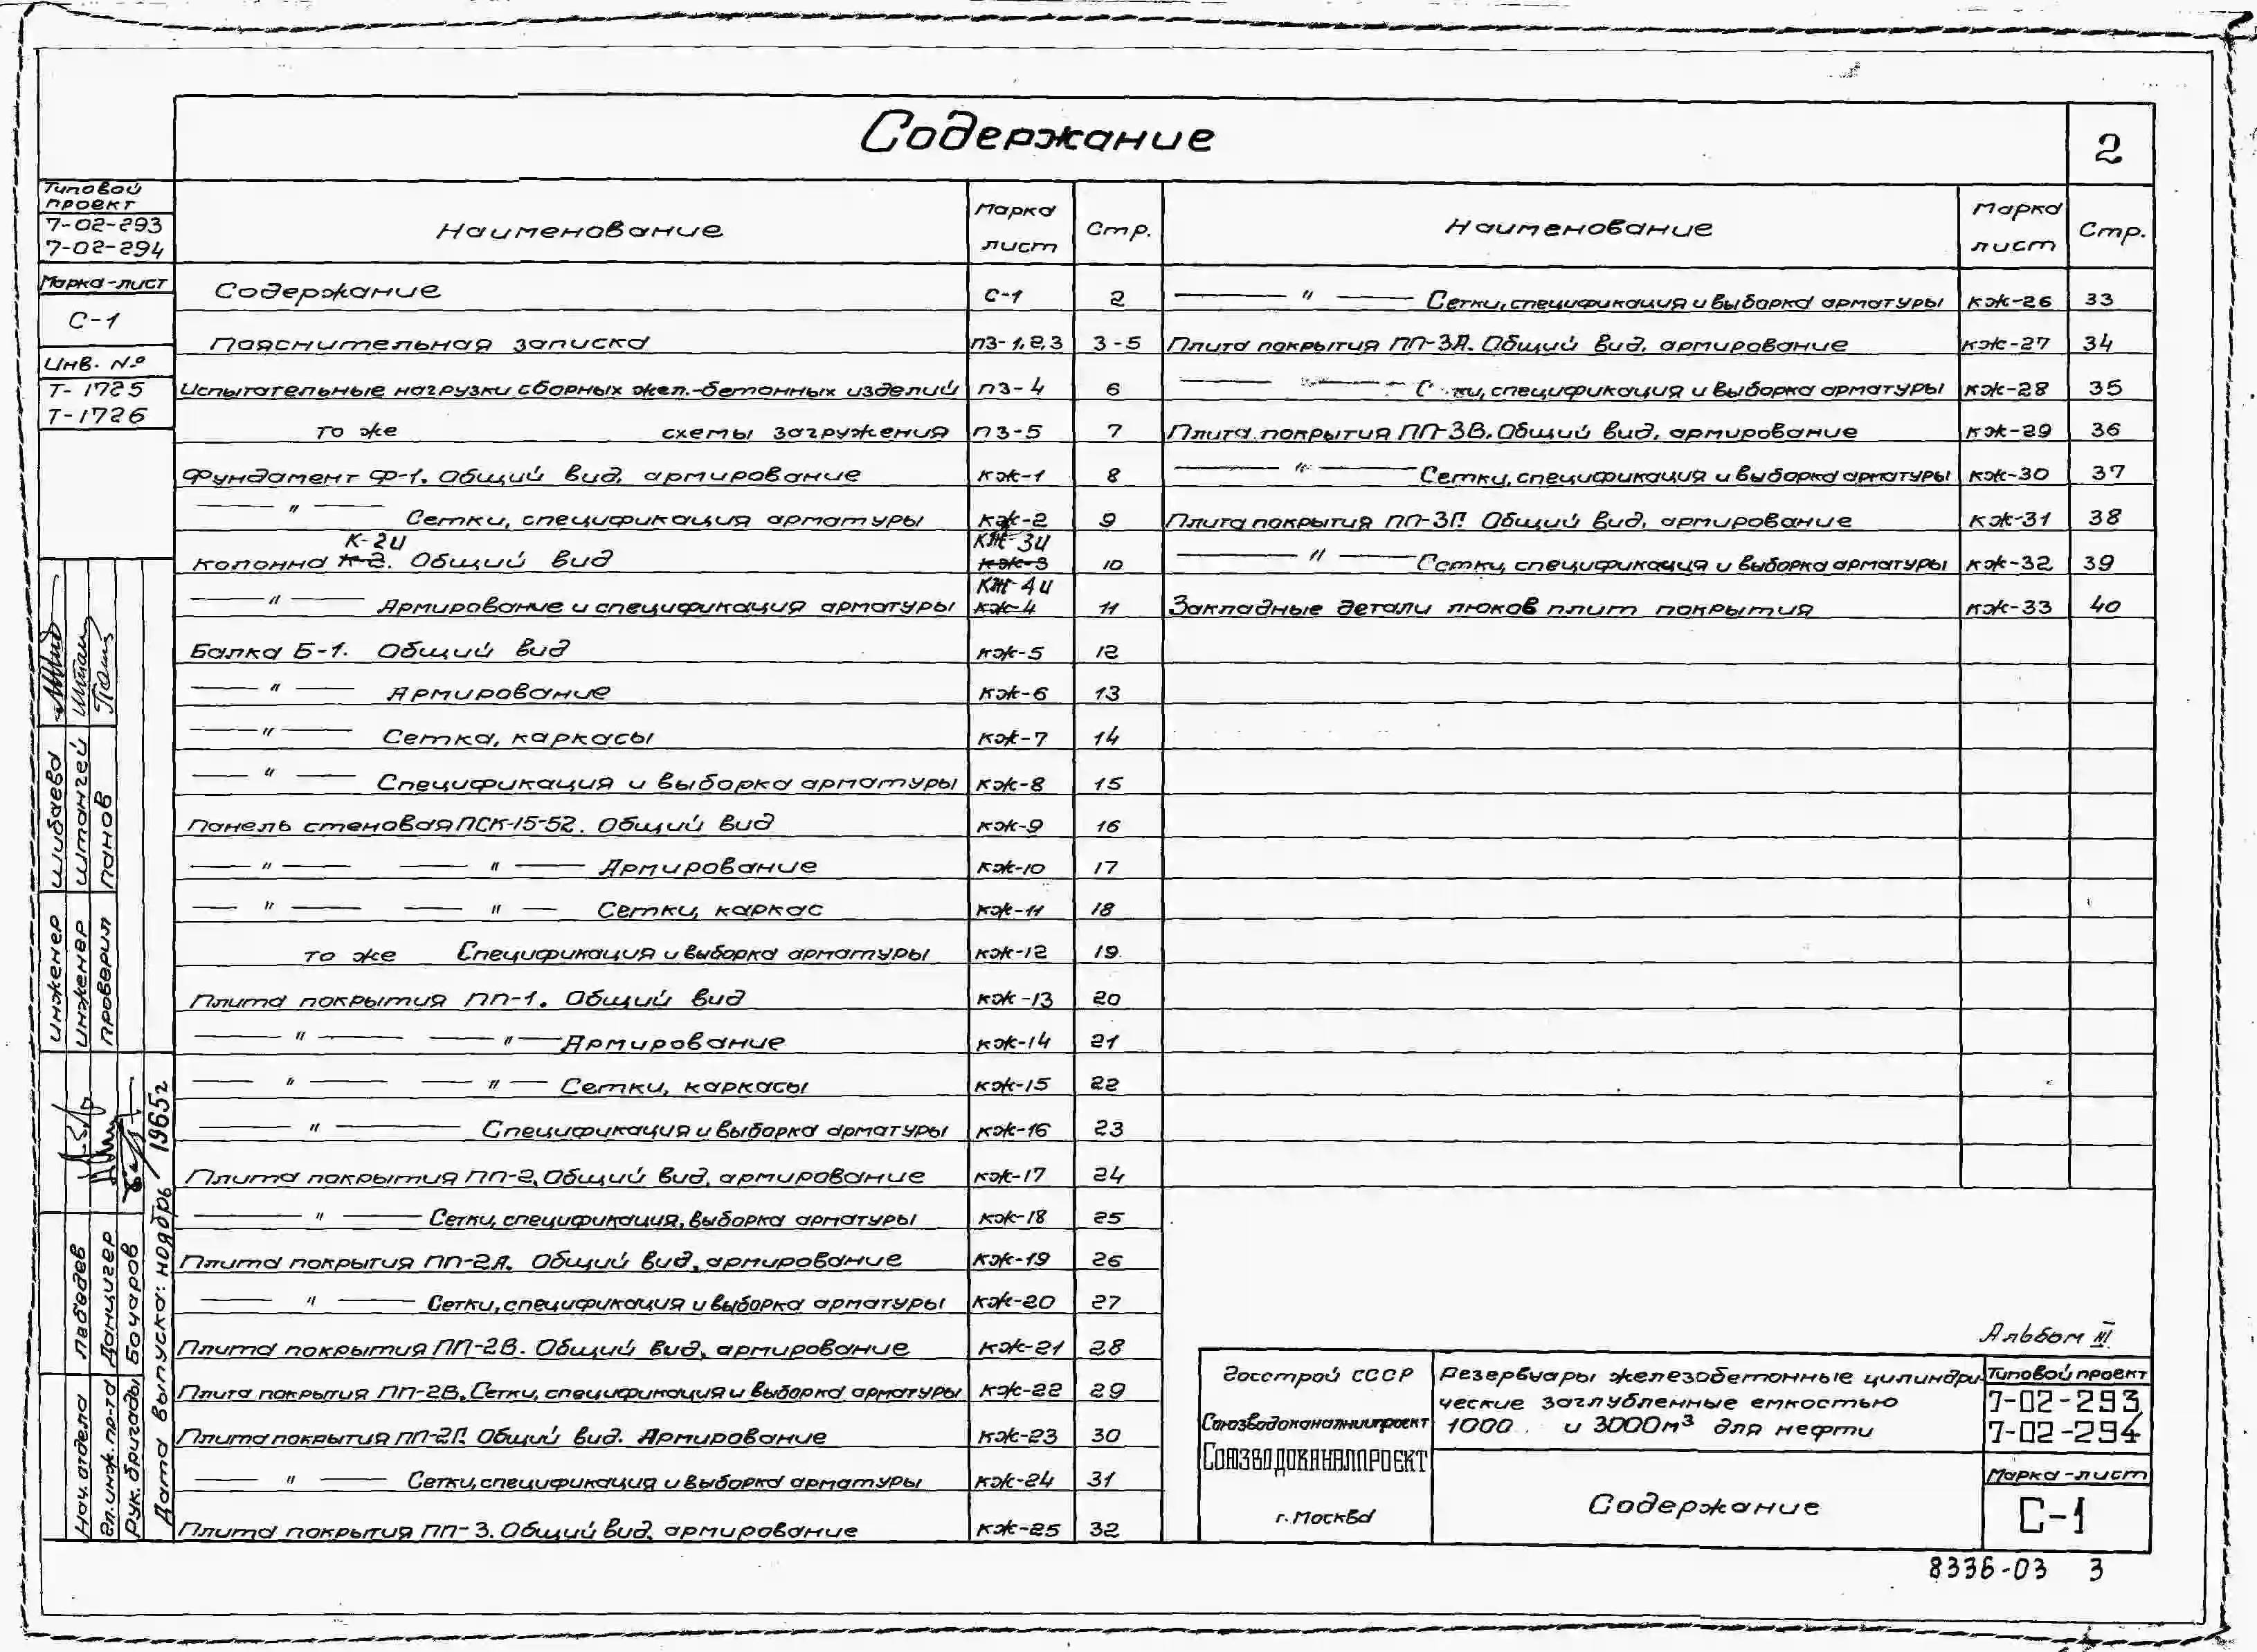 Содержание
2
Типовой проект
7-02-293
7-02-294
Марка-лист
С-1
Инв. №
Т-1725
Т-1726
Наименование Марка лист Стр.
Содержание С-1 2
Пояснительная записка ПЗ-1,2,3 3-5
Испытательные нагрузки сборных жел.-бетонных изделий ПЗ-4 6
То же схемы загружения ПЗ-5 7
Фундамент Ф-1. Общий вид, армирование КЖ-1 8
—— " —— Сетки, спецификация арматуры КЖ-2 9
К-2И КЖ-3И
Колонна К-2. Общий вид КЖ-3 10
КЖ-4И
—— " —— Армирование и спецификация арматуры КЖ-4 11
Балка Б-1. Общий вид КЖ-5 12
—— " —— Армирование КЖ-6 13
—— " —— Сетка, каркасы КЖ-7 14
—— " —— Спецификация и выборка арматуры КЖ-8 15
Панель стеновая ПСК-15-52. Общий вид КЖ-9 16
—— " —— —— " —— Армирование КЖ-10 17
—— " —— —— " —— Сетки, каркас КЖ-11 18
То же Спецификация и выборка арматуры КЖ-12 19
Плита покрытия ПП-1. Общий вид КЖ-13 20
—— " —— —— " —— Армирование КЖ-14 21
—— " —— —— " —— Сетки, каркасы КЖ-15 22
—— " —— Спецификация и выборка арматуры КЖ-16 23
Плита покрытия ПП-2, Общий вид, армирование КЖ-17 24
—— " —— Сетки, спецификация, выборка арматуры КЖ-18 25
Плита покрытия ПП-2А. Общий вид, армирование КЖ-19 26
—— " —— Сетки, спецификация и выборка арматуры КЖ-20 27
Плита покрытия ПП-2В. Общий вид, армирование КЖ-21 28
Плита покрытия ПП-2В. Сетки, спецификация и выборка арматуры КЖ-22 29
Плита покрытия ПП-2Г. Общий вид. Армирование КЖ-23 30
—— " —— Сетки, спецификация и выборка арматуры КЖ-24 31
Плита покрытия ПП-3. Общий вид, армирование КЖ-25 32
Наименование Марка лист Стр.
—— " —— Сетки, спецификация и выборка арматуры КЖ-26 33
Плита покрытия ПП-3А. Общий вид, армирование КЖ-27 34
—— " —— С ки, спецификация и выборка арматуры КЖ-28 35
Плита покрытия ПП-3В. Общий вид, армирование КЖ-29 36
—— " —— Сетки, спецификация и выборка арматуры КЖ-30 37
Плита покрытия ПП-3Г. Общий вид, армирование КЖ-31 38
—— " —— Сетки, спецификация и выборка арматуры КЖ-32 39
Закладные детали люков плит покрытия КЖ-33 40
Инженер Шибаева
Инженер Штангей
Проверил Панов
Нач. отдела Лебедев
Гл. инж. пр-та Данцигер
Рук. бригады Бочаров
Дата выпуска: ноябрь 1965г
Альбом III
Госстрой СССР
Союзводоканалниипроект
СОЮЗВОДОКАНАЛПРОЕКТ
г. Москва
Резервуары железобетонные цилиндри-
ческие заглубленные емкостью
1000 и 3000м³ для нефти
Содержание
Типовой проект
7-02-293
7-02-294
Марка-лист
С-1
8336-03 3